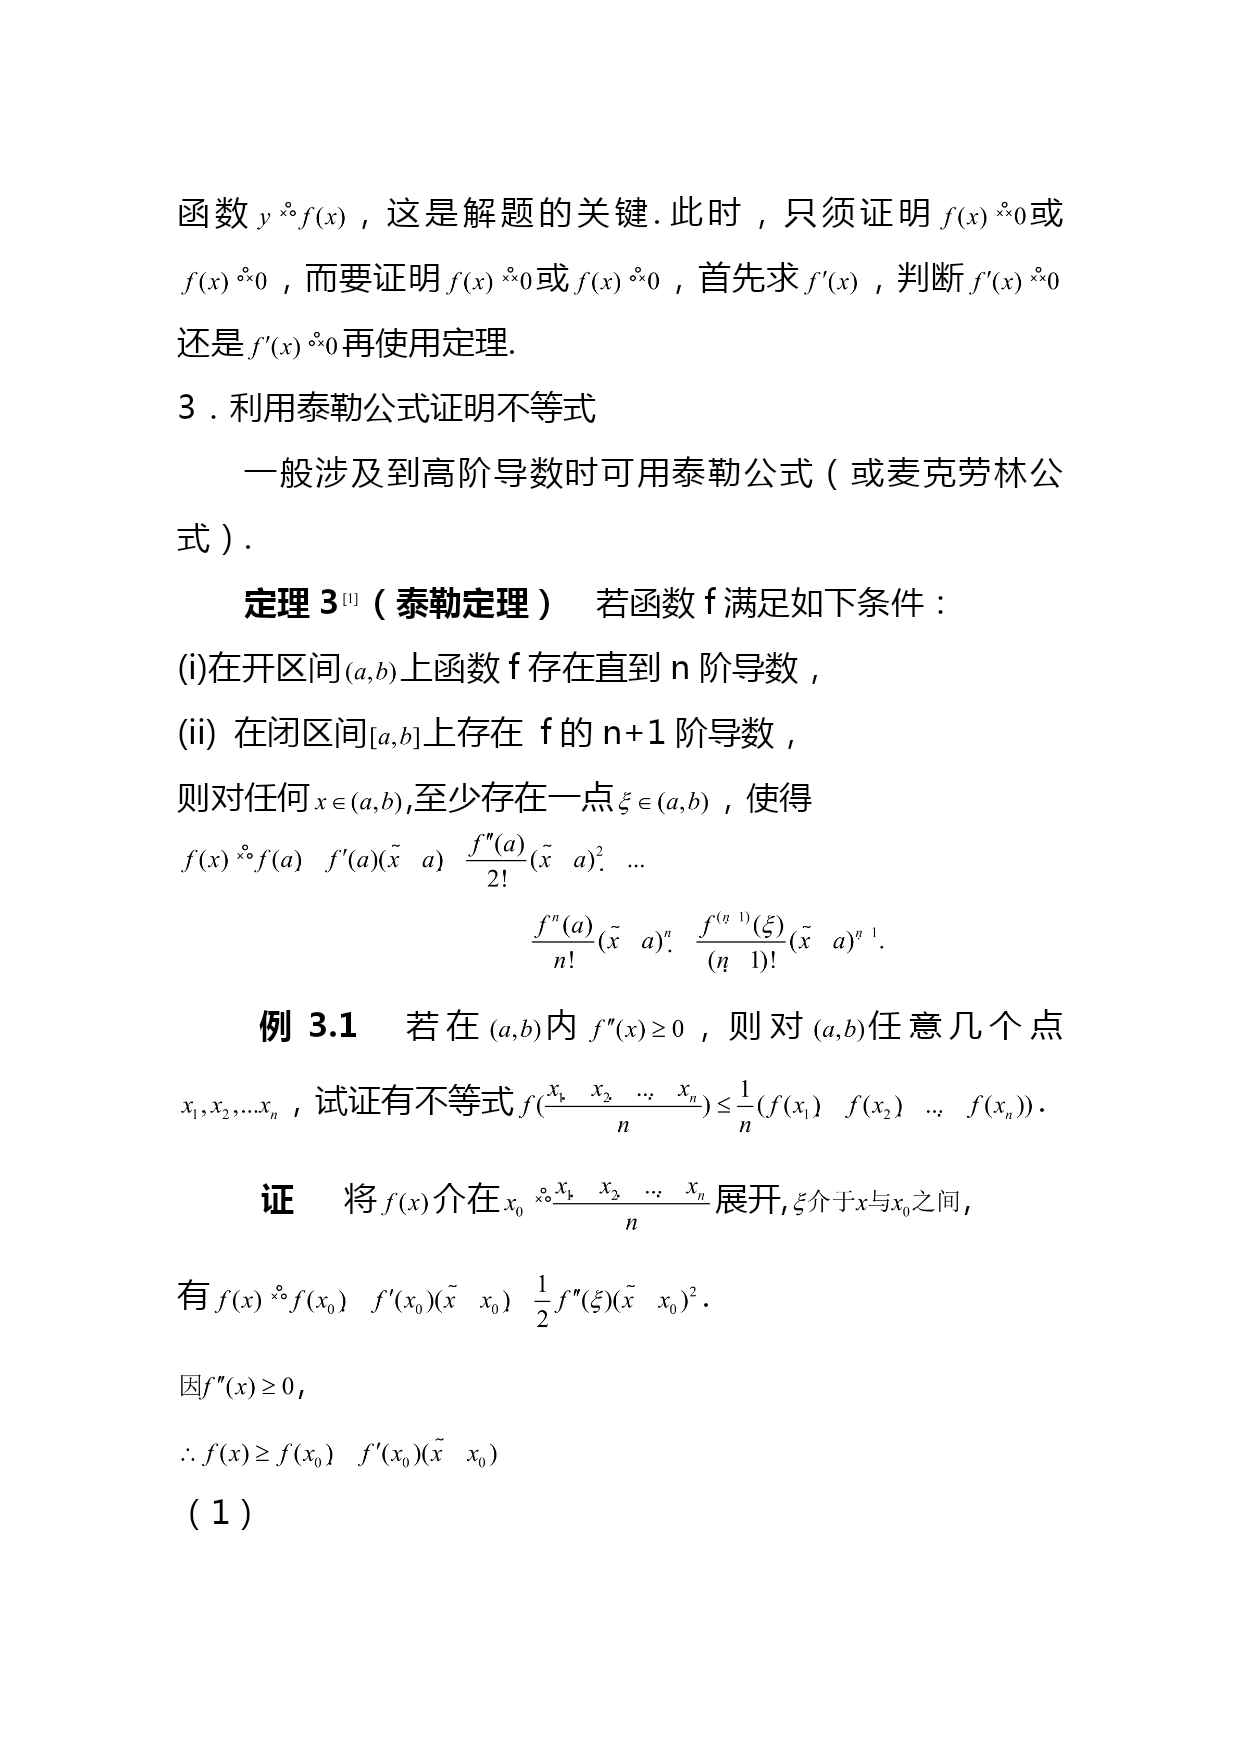 函数 y f(x)，这是解题的关键. 此时，只须证明 f(x) 0或
f(x) 0，而要证明 f(x) 0或 f(x) 0，首先求 f′(x)，判断 f′(x) 0
还是 f′(x) 0再使用定理.
3．利用泰勒公式证明不等式
一般涉及到高阶导数时可用泰勒公式（或麦克劳林公
式）.
定理 3[1]（泰勒定理） 若函数 f 满足如下条件：
(i)在开区间(a,b)上函数 f 存在直到 n 阶导数，
(ii) 在闭区间[a,b]上存在 f 的 n+1 阶导数，
则对任何 x∈(a,b),至少存在一点 ξ∈(a,b)，使得
f(x) f(a) f′(a)(x a) f″(a)/2! (x a)² ...
fⁿ(a)/n! (x a)ⁿ f⁽ⁿ ¹⁾(ξ)/(n 1)! (x a)ⁿ ¹.
例 3.1 若在 (a,b)内 f″(x)≥0，则对 (a,b)任意几个点
x₁,x₂,...xₙ，试证有不等式 f((x₁ x₂ ... xₙ)/n)≤1/n (f(x₁) f(x₂) ... f(xₙ)).
证 将 f(x)介在 x₀ (x₁ x₂ ... xₙ)/n 展开, ξ介于x与x₀之间,
有 f(x) f(x₀) f′(x₀)(x x₀) 1/2 f″(ξ)(x x₀)².
因f″(x)≥0,
∴ f(x)≥f(x₀) f′(x₀)(x x₀)
（1）